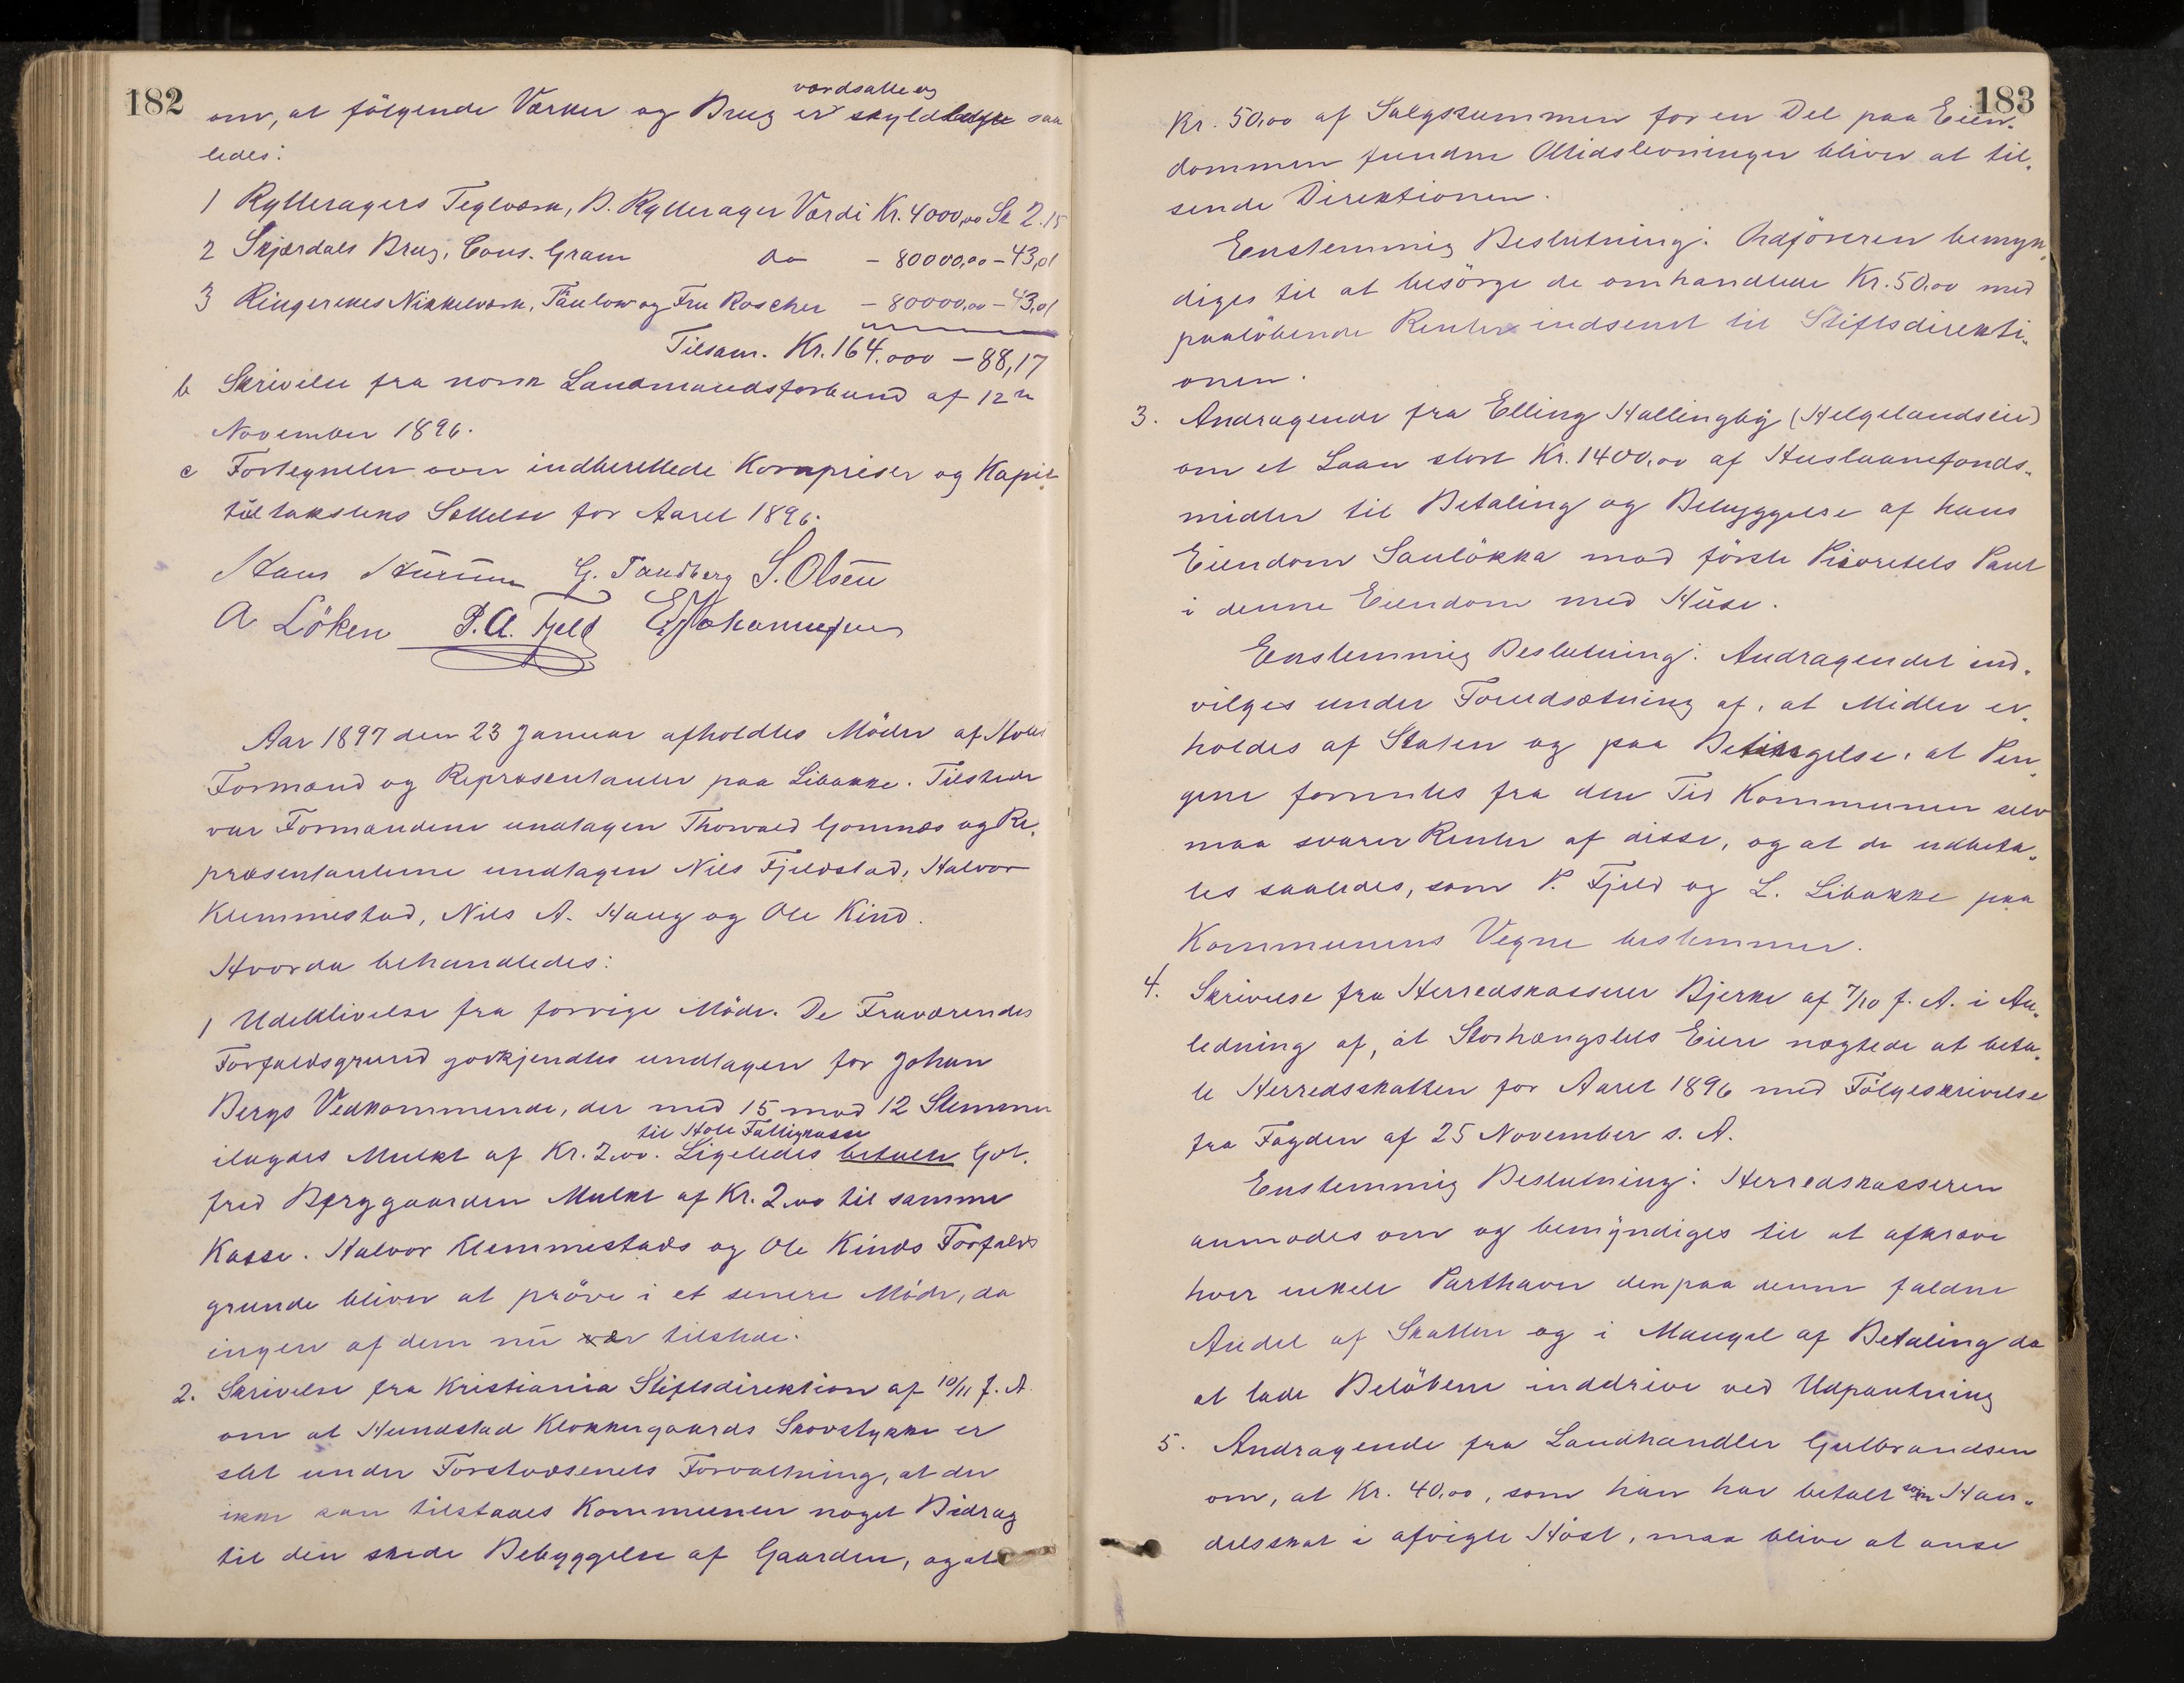 182
værdsatte og
om, at fölgende Værker og Brug er skyldlagte saa
ledes:
1 Rytteragers Teglværk, B. Rytterager Værdi Kr. 4000,00 Sk 2.15
2 Skjærdals Brug, Cons. Gram do - 80000,00 - 43,01
3 Ringerikes Nikkelværk, Paulow og Fru Roscher - 80000,00 - 43,01
Tilsam. Kr. 164.000 - 88,17
b Skrivelse fra norsk Landmandsforbund af 12te
November 1896.
c Fortegnelse over indberettede Kornpriser og Kapit
teltakstens Sættelse for Aaret 1896.
Hans Hurum G. Tandberg S. Olsen
A Löken P.A. Fjeld E. Johannessen
Aar 1897 den 23 Januar afholdtes Möder af Hole
Formænd og Repræsentanter paa Libakke. Tilstede
var Formændene undtagen Thorvald Gomnæs og Re-
præsentanterne undtagen Nils Fjeldstad, Halvor
Klemmestad, Nils A. Haug og Ole Kind.
Hvorda behandledes:
1 Udeblivelse fra forrige Möde. De Fraværendes
Forfaldsgrund godkjendtes undtagen for Johan
Bergs Vedkommende, der med 15 mod 12 Stemmer
til Hole Fattigkasse
ilagdes Mulkt af Kr. 2,00. Ligeledes betaler Got-
fred Bjerggaarden Mulkt af Kr. 2,00 til samme
Kasse. Halvor Klemmestads og Ole Kinds Forfalds
grunde bliver at pröve i et senere Möde, da
ingen af dem nu var tilstede.
2. Skrivelse fra Kristiania Stiftsdirektion af 10/11 f. A.
om at Hundstad Klokkergaards Skovstykke er
sat under Forstvæsenets Forvaltning, at der
ikke kan tilstaaes Kommunen noget Bidrag
til den skede Bebyggelse af Gaarden, og at
183
Kr. 50,00 af Salgssummen for en Del paa Eien-
dommen fundne Oltidslevninger bliver at til-
sende Direktionen.
Enstemmig Beslutning: Ordföreren bemyn-
diges til at besörge de omhandlede Kr. 50,00 med
paalöbende Renter indsendt til Stiftsdirekti-
onen.
3. Andragende fra Elling Hallingby (Helgelandseie)
om et Laan stort Kr. 1400,00 af Huslaanefonds-
midler til Betaling og Bebyggelse af hans
Eiendom Saulökka mod förste Prioritets Pant
i denne Eiendom med Huse.
Enstemmig Beslutning: Andragendet ind-
vilges under Forudsætning af, at Midler er-
holdes af Staten og paa Betingelse, at Pen-
gene forrentes fra den Tid Kommunen selv
maa svare Renter af disse, og at de udbeta-
les saaledes, som P. Fjeld og L. Libakke paa
Kommunens Vegne bestemmer.
4. Skrivelse fra Herredskasserer Bjerke af 7/10 f. A. i An-
ledning af, at Storhængslets Eiere nægtede at beta-
le Herredsskatten for Aaret 1896 med Fölgeskrivelse
fra Fogden af 25 November s. A.
Enstemmig Beslutning: Herredskasseren
anmodes om og bemyndiges til at afkræve
hver enkelt Parthaver den paa denne faldne
Andel af Skatten og i Mangel af Betaling da
at lade Belöbene inddrive ved Udpantning
5. Andragende fra Landhandler Gulbrandsen
om, at Kr. 40,00, som han har betalt som Han-
delsskat i afvigte Höst, maa blive at anse